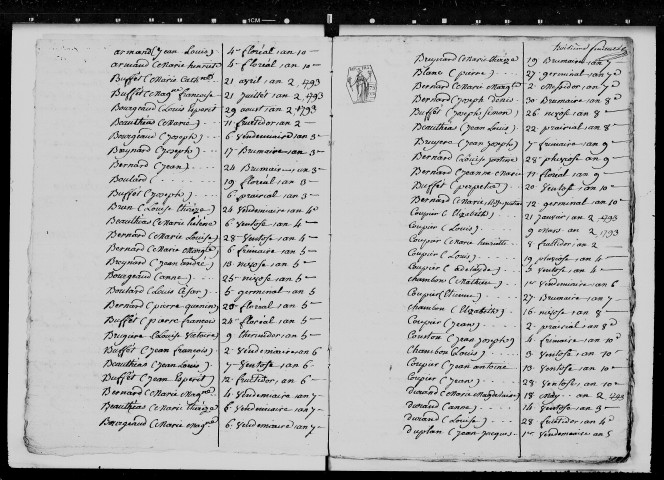 armand (Jean Louis) 4e floréal an 10e
armand (Marie henriette 4e floréal an 10e
Buffet (Marie Cathne) 21 avril an 2 1793
Buffet (Magne françoise 21 Juillet an 2 1793
Bourgeaud (Louis Esperit 29 aoust an 2 1793
Beauthias (Marie) 11 fructidor an 2
Bourgeaud (Joseph) 6 Vendemiaire an 3e
Breynard (Joseph) 17 Brumaire an 3e
Bernard (Jean) 24 Brumaire an 3e
Boulard ( 19 floréal an 3e
Buffet (Joseph) 6 prairial an 3
Brun (Louise thérèze) 24 Vendemiaire an 4e
Beauthias (Marie hélène 6 Ventose an 4
Bernard (Marie Louise) 28 Ventose an 4
Bernard (Marie Magne) 6 frimaire an 5
Breynard (Jean André) 13 nivose an 5
Bourgeaud (anne) 25 nivose an 5
Boulard (Louis César) 5 germinal an 5
Bernard (pierre quenin) 20 floréal an 5
Buffet (pierre françois 24 floréal an 5
Bruguier (Louise Victoire) 9 thermidor an 5
Buffet (Jean françois) 2 Vendemiaire an 6
Beauthias (Jean Louis) 7 Ventose an 6
Buffet (Jean Esperit) 12 fructidor an 6
Bernard (Marie Magne) 4 Vendemiaire an 7
Beauthias (Marie thérèze 6 Vendemiaire an 7
Bourgeaud (Marie Magne 6 Vendemiaire an 7
Breynard (Marie thérèze 19 Brumaire an 7e
Blanc (pierre) 27 germinal an 7e
Bernard (Marie Magne) 2 Messidor an 7
Bernard (Joseph Denis) 30 Brumaire an 8e
Buffet (Joseph Simeon) 26 nivose an 8
Beauthias (Jean Louis) 22 prairial an 8
Bruyere (Jean Joseph) 7 frimaire an 9
Bernard (Louise 28 pluviose an 9
Bernard (Jeanne Marie 11 floréal an 9
Buffet (perpetue) 20 Ventose an 10
Bernard (Marie 12 germinal an 10
Coupier (Elizabeth) 21 Janvier an 2 1793
Coupier (Louis) 9 Mars an 2 1793
Coupier (Marie henriette 8 fructidor an 2
Coupier (Louis) 19 pluviose an 4
Coupier (adelayde) 5 Ventose an 4
Chambon (Mathieu) 1er Vendemiaire an 6
Coupier (Etienne) 27 Brumaire an 7
Chambon (Elizabeth) 16 nivose an 8
Coupier (Jean) 2 prairial an 8
Couston (Jean Joseph) 4 frimaire an 10
Chambon (Louis) 3 Ventose an 10
Coupier (Jean antoine 13 Ventose an 10
Coupier (Jean) 23 Ventose an 10
Durand (Marie Magdelaine) 18 May an 2 1793
Durand (anne) 14 Ventose an 3
Durand (Louise) 28 fructidor an 4
Duplan (Jean Jacques) 1er Vendemiaire an 5